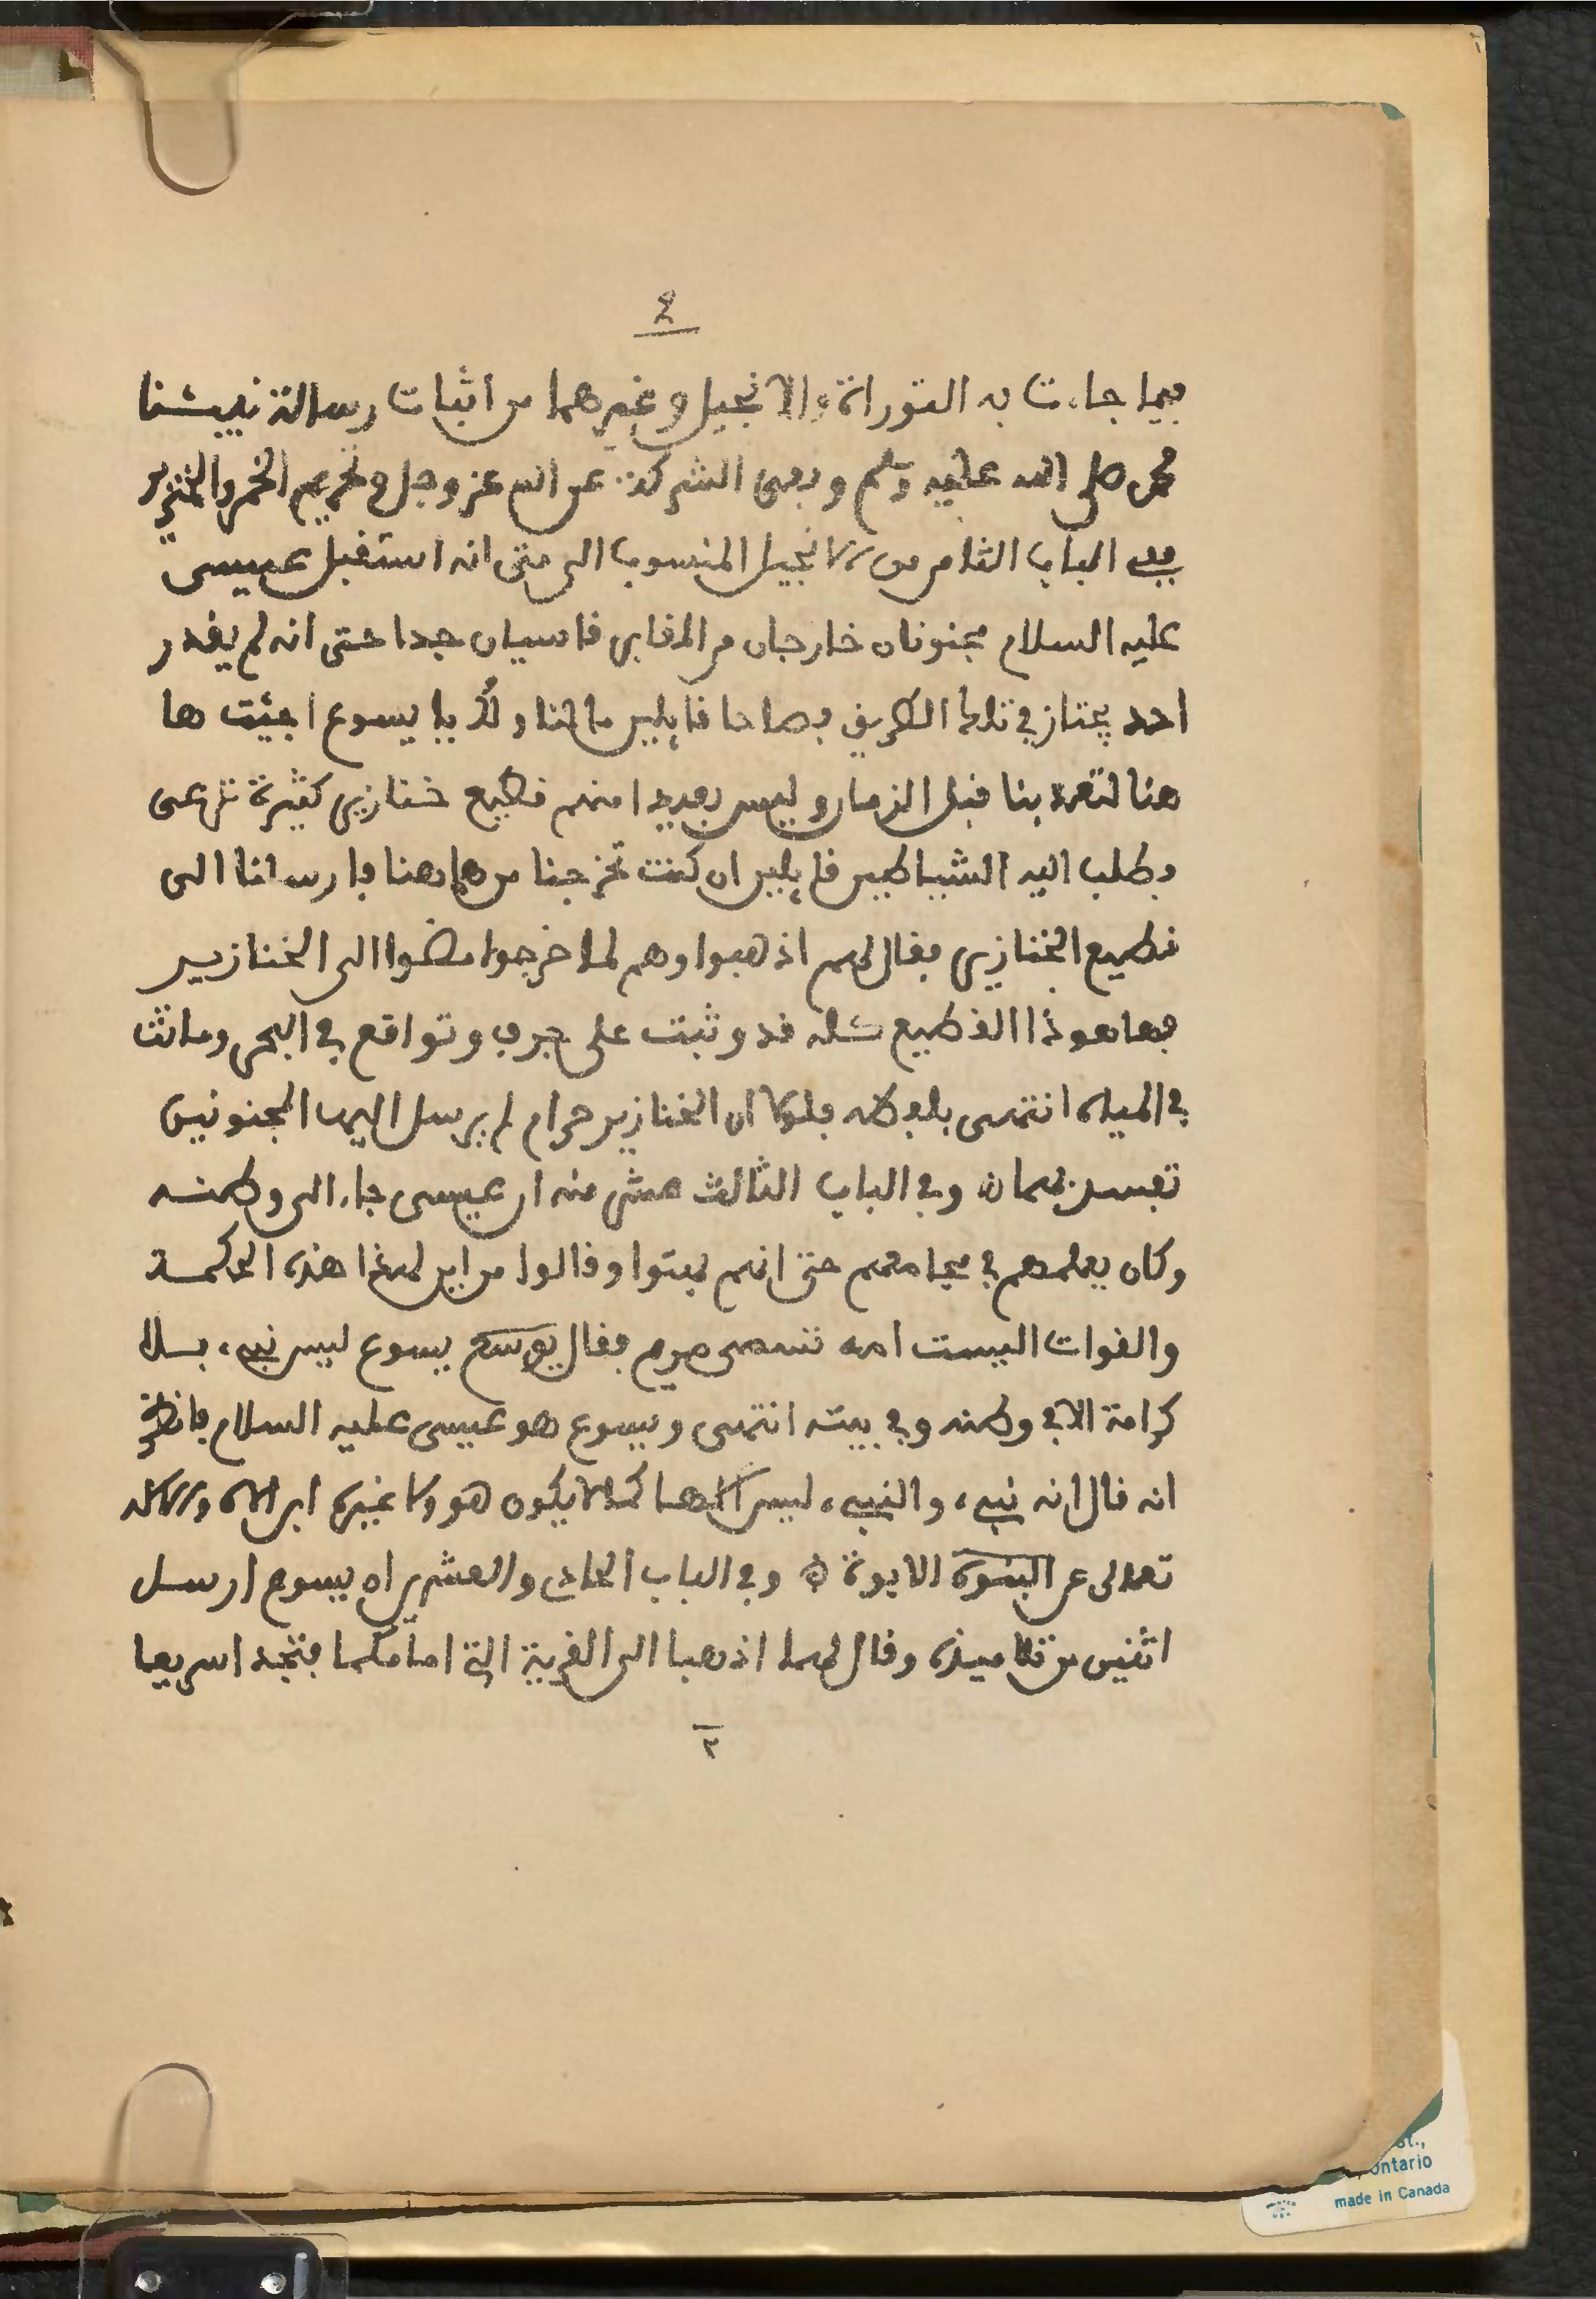 ٤
فيما جاءت به التوراة والانجيل وغيرهما من اثبات رسالة نبيئنا
محمد صلى الله عليه وسلم ونفى الشركة عن الله عز وجل وتحريم الخمر والخنزير
ففى الباب الثامن من الانجيل المنسوب الى متى انه استقبل عيسى
عليه السلام مجنونان خارجان من المقابر قاسيان جدا حتى انه لم يقدر
احد يجتاز في تلك الطريق فصاحا قايلين ما لنا ولك يا يسوع اجئت ها
هنا لتعذبنا قبل الزمان وليس بعيدا منهم قطيع خنازير كثيرة ترعى
فطلب اليه الشياطين قايلين ان كنت تخرجنا من هاهنا فارسلنا الى
قطيع الخنازير فقال لهم اذهبوا وهم لما خرجوا مضوا الى الخنازير
فهاهوذا القطيع كله قد وثبت على جرف وتواقع في البحر وماتت
في المياه انتهى بلفظه فلولا ان الخنازير حرام لم يرسل اليها المجنونين
تفسدهما ن وفي الباب الثالث عشر منه ان عيسى جاء الى وطنه
وكان يعلمهم في مجامعهم حتى انهم بهتوا وقالوا من اين لهذا هذه الحكمة
والقوات اليست امه تسمى مريم فقال يسوع ليس نبيء بلا
كرامة الا في وطنه وفي بيته انتهى ويسوع هو عيسى عليه السلام فانظر
انه قال انه نبيء، والنبيء ليس الاها كما لا يكون هو ولا غيره ابن الاه والاله
تعالى عن البنوة الابوة ن وفي الباب الحادى والعشرين ان يسوع ارسل
اثنين من تلاميذه وقال لهما اذهبا الى القرية التي امامكما فتجدا سريعا
٢
St.,
Ontario
made in Canada